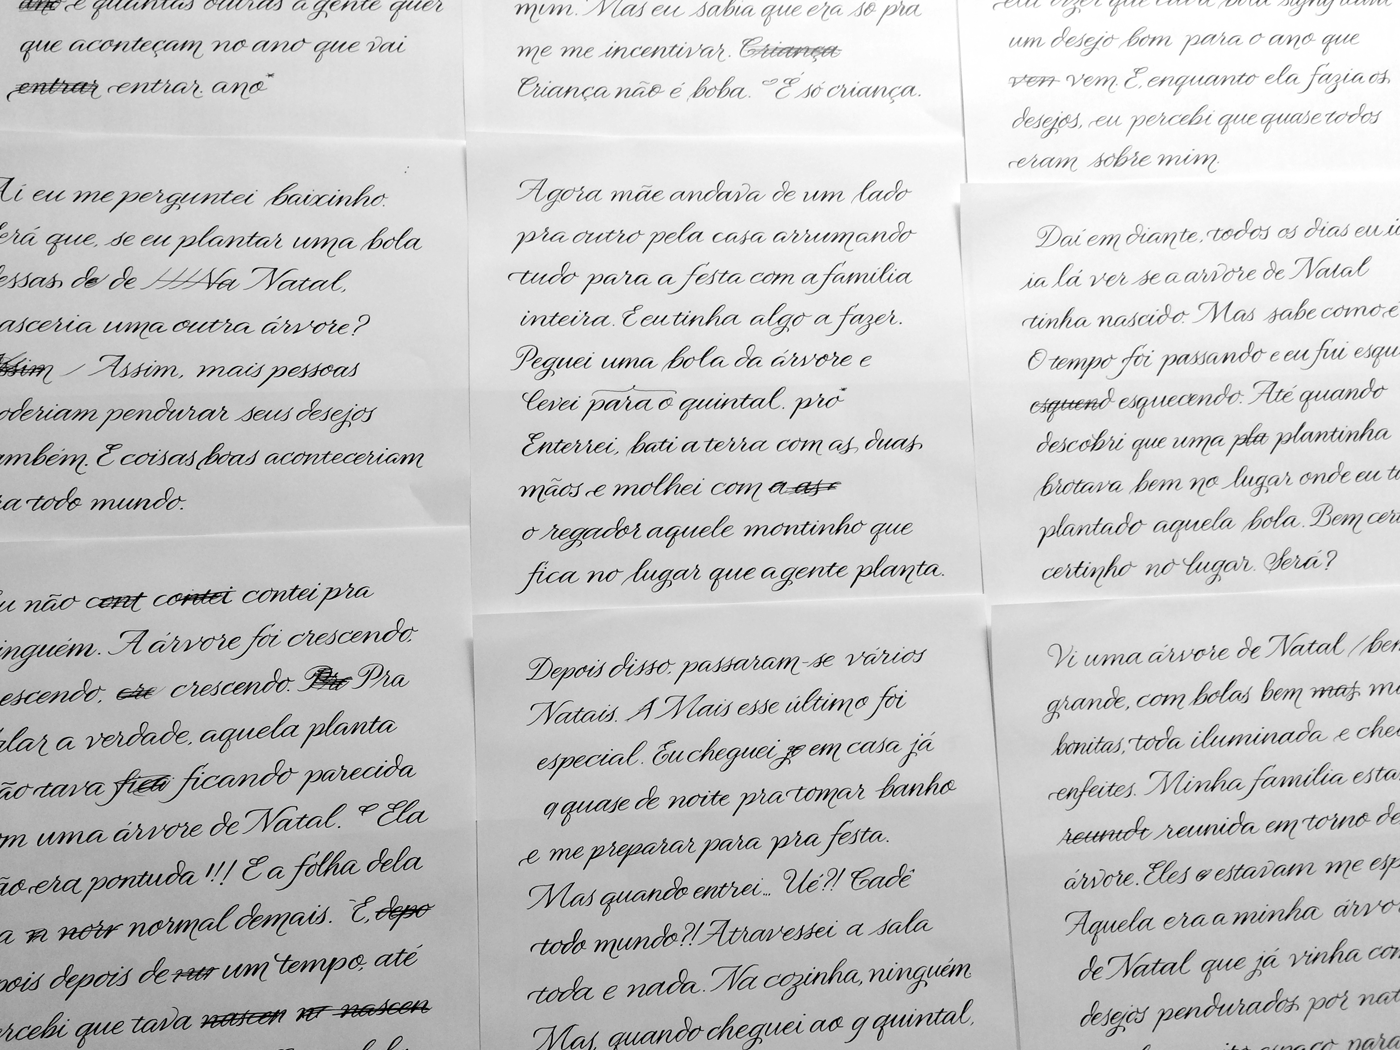 ano e quantas outras a gente quer
que aconteçam no ano que vai
entrar entrar. ano
mim. Mas eu sabia que era só pra
me me incentivar. Criança
Criança não é boba. É só criança.
um desejo bom para o ano que
ven vem. E, enquanto ela fazia os
desejos, eu percebi que quase todos
eram sobre mim.
Aí eu me perguntei baixinho.
erá que, se eu plantar uma bola
essas de de Na Natal,
asceria uma outra árvore?
Assim Assim, mais pessoas
oderiam pendurar seus desejos
ambém. E coisas boas aconteceriam
ra todo mundo.
Agora mãe andava de um lado
pra outro pela casa arrumando
tudo para a festa com a família
inteira. E eu tinha algo a fazer.
Peguei uma bola da árvore e
levei para o quintal. pro
Enterrei, bati a terra com as duas
mãos e molhei com a as
o regador aquele montinho que
fica no lugar que a gente planta.
Daí em diante, todos os dias eu i
ia lá ver se a arvore de Natal
tinha nascido. Mas sabe como é
O tempo foi passando e eu fui esqu
esquend esquecendo. Até quando
descobri que uma pla plantinha
brotava bem no lugar onde eu t
plantado aquela bola. Bem cert
certinho no lugar. Será?
u não cont contei contei pra
inguém. A árvore foi crescendo,
escendo, cre crescendo. Pra Pra
alar a verdade, aquela planta
ão tava fica ficando parecida
om uma árvore de Natal. Ela
ão era pontuda!!! E a folha dela
a n norr normal demais. E, depo
pois depois de um tempo, até
ercebi que tava nascen nascen
Depois disso, passaram-se vários
Natais. A Mais esse último foi
especial. Eu cheguei je em casa já
q quase de noite pra tomar banho
e me preparar para pra festa.
Mas quando entrei... Ué?! Cadê
todo mundo?! Atravessei a sala
toda e nada. Na cozinha, ninguém
Mas, quando cheguei ao q quintal,
Vi uma árvore de Natal ben
grande, com bolas bem mas m
bonitas, toda iluminada e che
enfeites. Minha família esta
reunidt reunida em torno de
árvore. Eles e estavam me esp
Aquela era a minha árvo
de Natal que já vinha com
desejos pendurados por nat